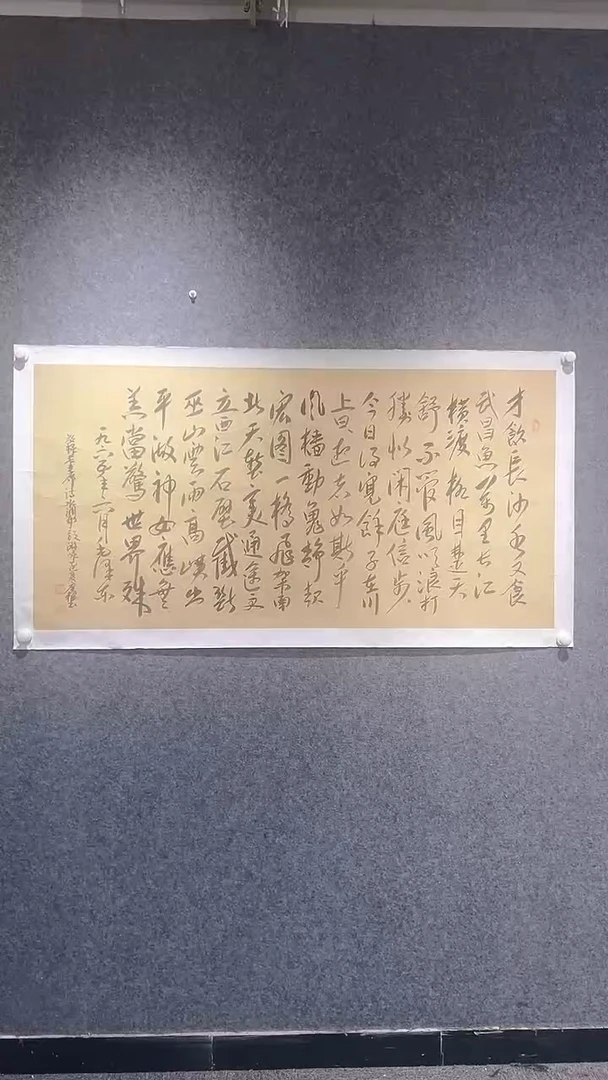 才飲長沙水又食
武昌魚萬里长江
橫渡極目楚天
舒不管風吹浪打
勝似閑庭信步
今日得寬餘子在川
上曰逝者如斯乎
風檣動龜蛇靜起
宏图一橋飛架南
北天塹变通途更
立西江石壁截斷
巫山雲雨高峽出
平湖神女應無
恙當驚世界殊
一九六六年六月毛澤东